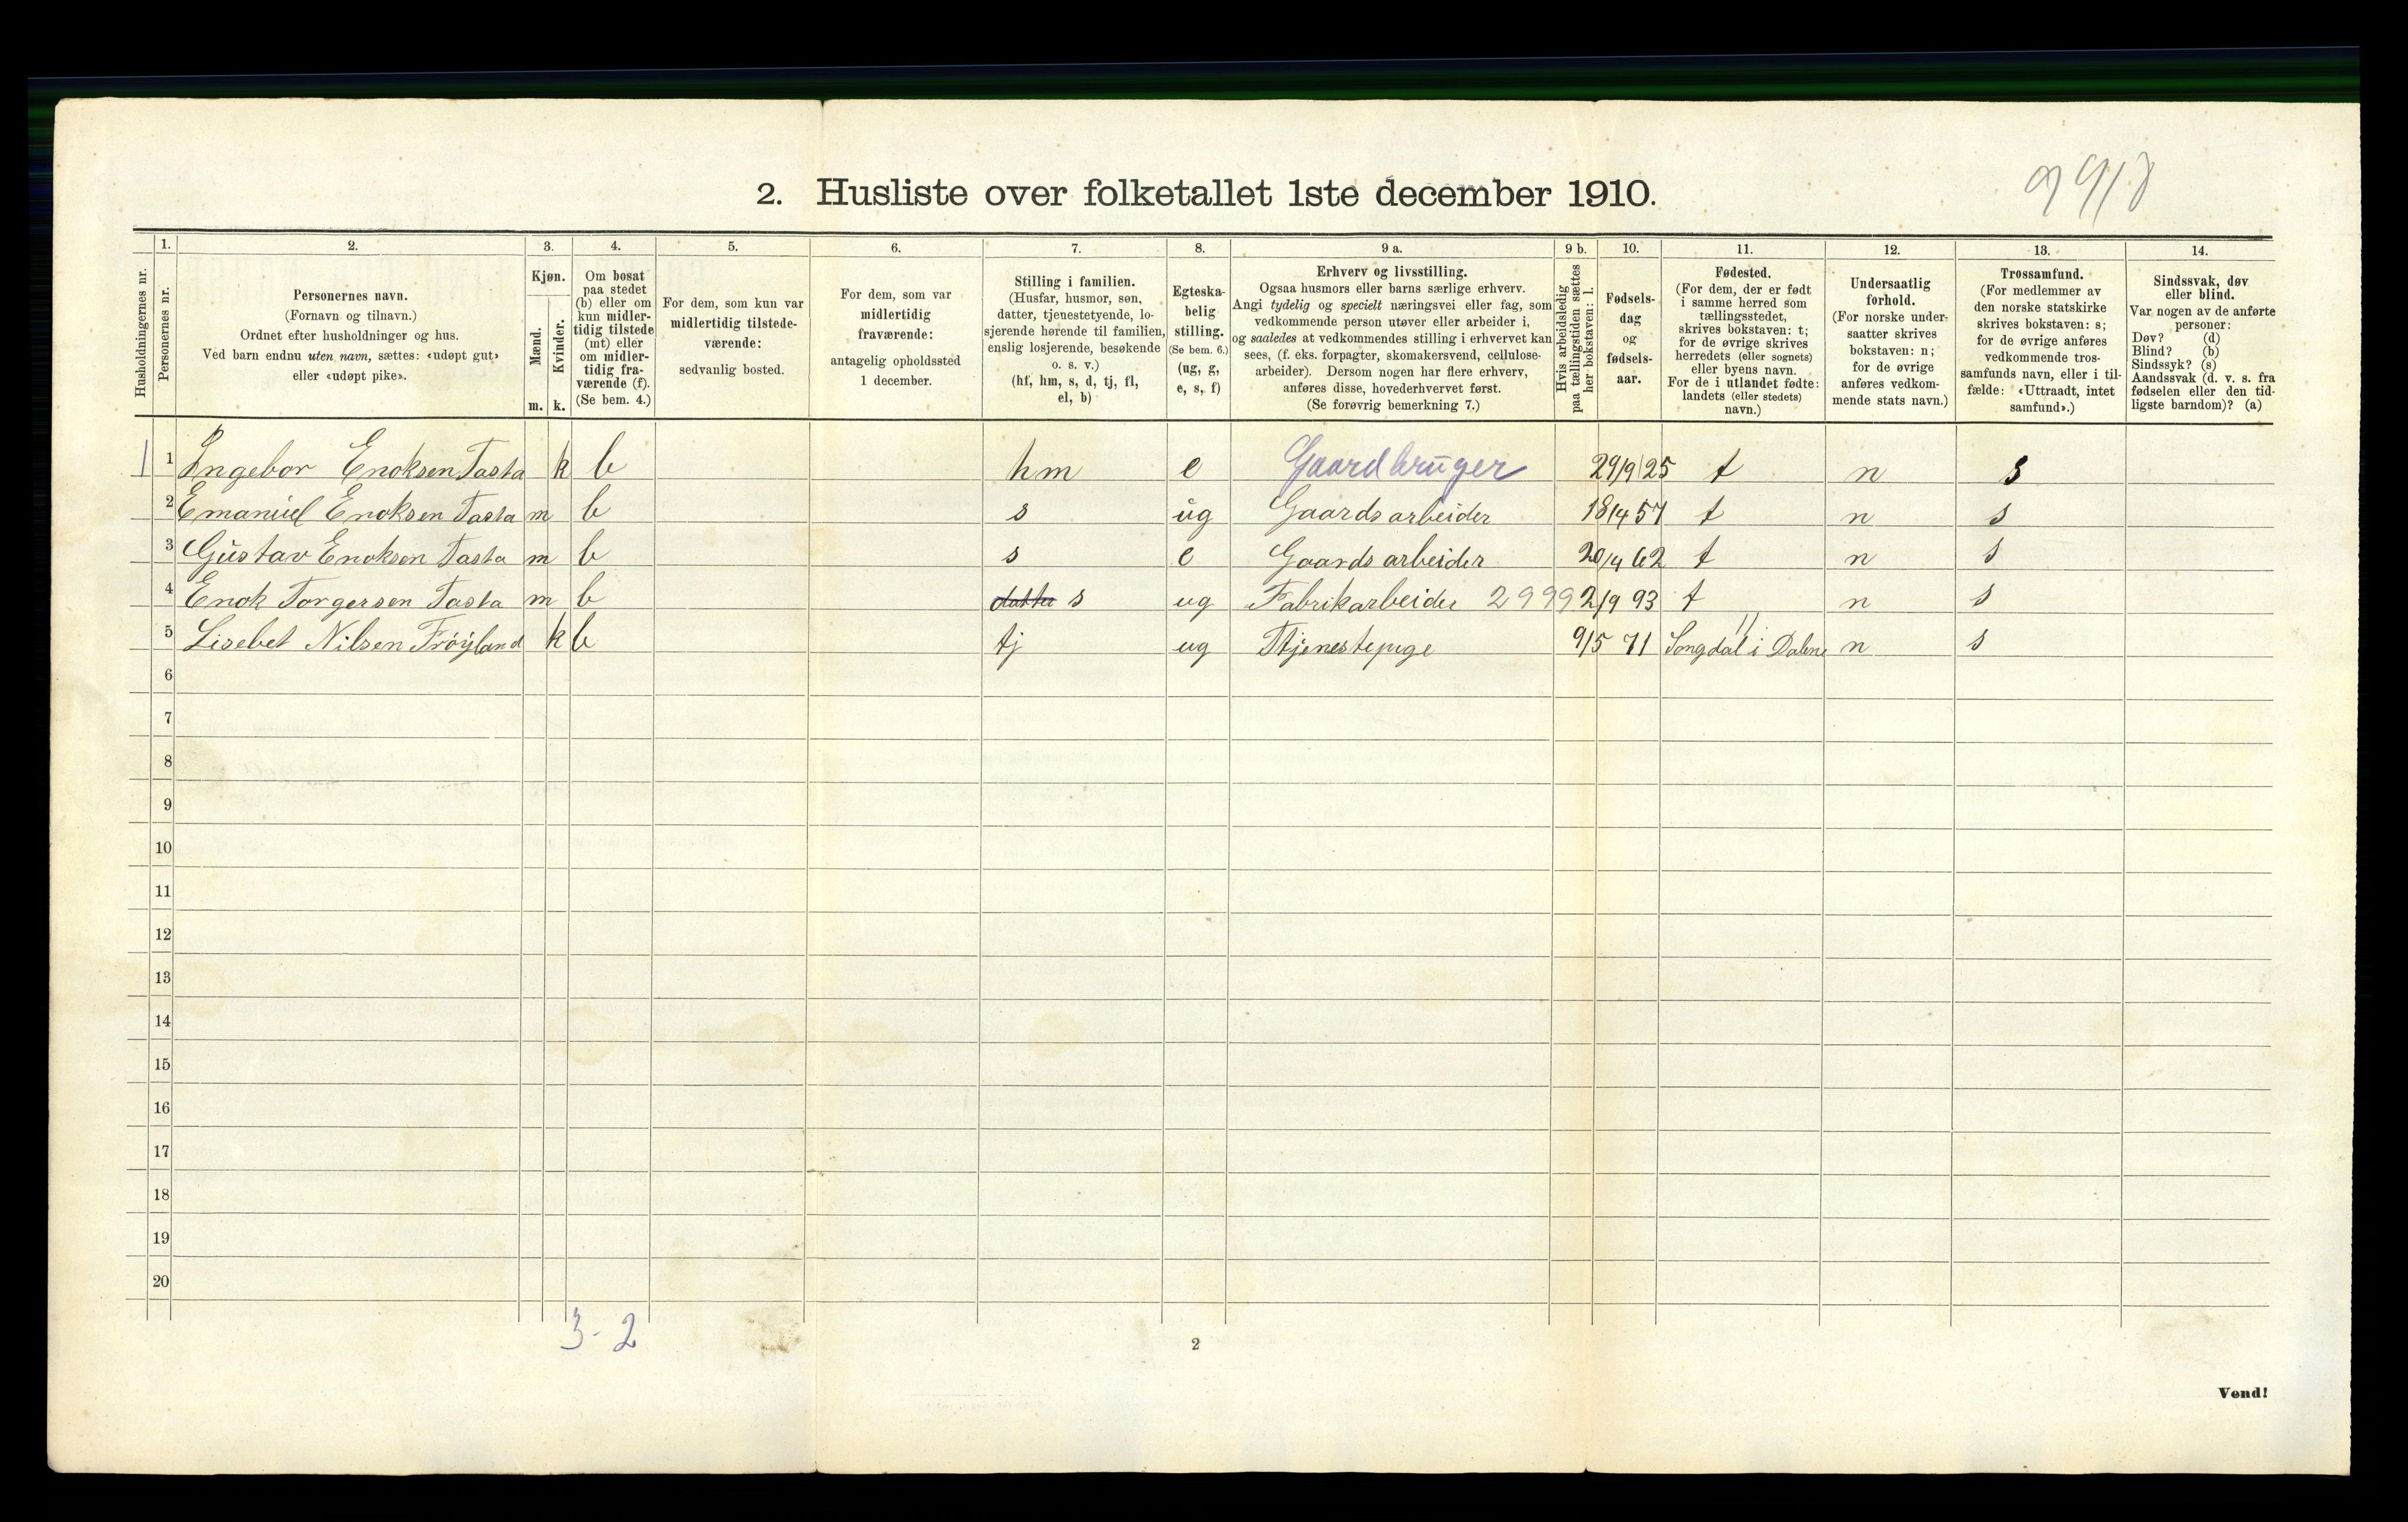 2. Husliste over folketallet 1ste december 1910.
1. 2. 3. 4. 5. 6. 7. 8. 9 a. 9 b. 10. 11. 12. 13. 14.
Husholdningernes nr.
Personernes nr.
Personernes navn.
(Fornavn og tilnavn.)
Ordnet efter husholdninger og hus.
Ved barn endnu uten navn, sættes: «udøpt gut»
eller «udøpt pike».
Kjøn.
Mænd.
Kvinder.
m. k.
Om bosat
paa stedet
(b) eller om
kun midler-
tidig tilstede
(mt) eller
om midler-
tidig fra-
værende (f).
(Se bem. 4.)
For dem, som kun var
midlertidig tilstede-
værende:
sedvanlig bosted.
For dem, som var
midlertidig
fraværende:
antagelig opholdssted
1 december.
Stilling i familien.
(Husfar, husmor, søn,
datter, tjenestetyende, lo-
sjerende hørende til familien,
enslig losjerende, besøkende
o. s. v.)
(hf, hm, s, d, tj, fl,
el, b)
Egteska-
belig
stilling.
(Se bem. 6.)
(ug, g,
e, s, f)
Erhverv og livsstilling.
Ogsaa husmors eller barns særlige erhverv.
Angi tydelig og specielt næringsvei eller fag, som
vedkommende person utøver eller arbeider i,
og saaledes at vedkommendes stilling i erhvervet kan
sees, (f. eks. forpagter, skomakersvend, cellulose-
arbeider). Dersom nogen har flere erhverv,
anføres disse, hovederhvervet først.
(Se forøvrig bemerkning 7.)
Hvis arbeidsledig
paa tællingstiden sættes
her bokstaven: l.
Fødsels-
dag
og
fødsels-
aar.
Fødested.
(For dem, der er født
i samme herred som
tællingsstedet,
skrives bokstaven: t;
for de øvrige skrives
herredets (eller sognets)
eller byens navn.
For de i utlandet fødte:
landets (eller stedets)
navn.)
Undersaatlig
forhold.
(For norske under-
saatter skrives
bokstaven: n;
for de øvrige
anføres vedkom-
mende stats navn.)
Trossamfund.
(For medlemmer av
den norske statskirke
skrives bokstaven: s;
for de øvrige anføres
vedkommende tros-
samfunds navn, eller i til-
fælde: «Uttraadt, intet
samfund».)
Sindssvak, døv
eller blind.
Var nogen av de anførte
personer:
Døv? (d)
Blind? (b)
Sindssyk? (s)
Aandssvak (d. v. s. fra
fødselen eller den tid-
ligste barndom)? (a)
1 1 Ingebor Enoksen Tasta k b hm e Gaardbruger 29/9 25 t n s
2 Emanuel Enoksen Tasta m b s ug Gaardsarbeider 18/4 57 t n s
3 Gustav Enoksen Tasta m b s e Gaardsarbeider 20/4 62 t n s
4 Enok Torgersen Tasta m b datter s ug Fabrikarbeider 2999 2/9 93 t n s
5 Lisebet Nilsen Frøyland k b tj ug Tjenestepige 9/5 71 Songdal i Dalene n s
6
7
8
9
10
11
12
13
14
15
16
17
18
19
20
3-2
2
Vend!